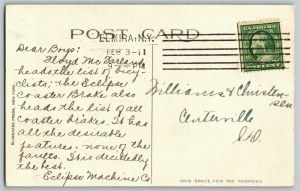 POST CARD
ELMIRA, N.Y.
FEB 3-11
Dear Boys:
Floyd McFarland
heads the list of bicy-
clists; the Eclipse
Coaster Brake also
heads the list of all
coaster brakes. It has
all the desirable
features - none of the
faults. It is decidedly
the best.
Eclipse Machine Co.
Williams & Christen-
sen
Centerville
S.D.
THIS SPACE FOR THE ADDRESS